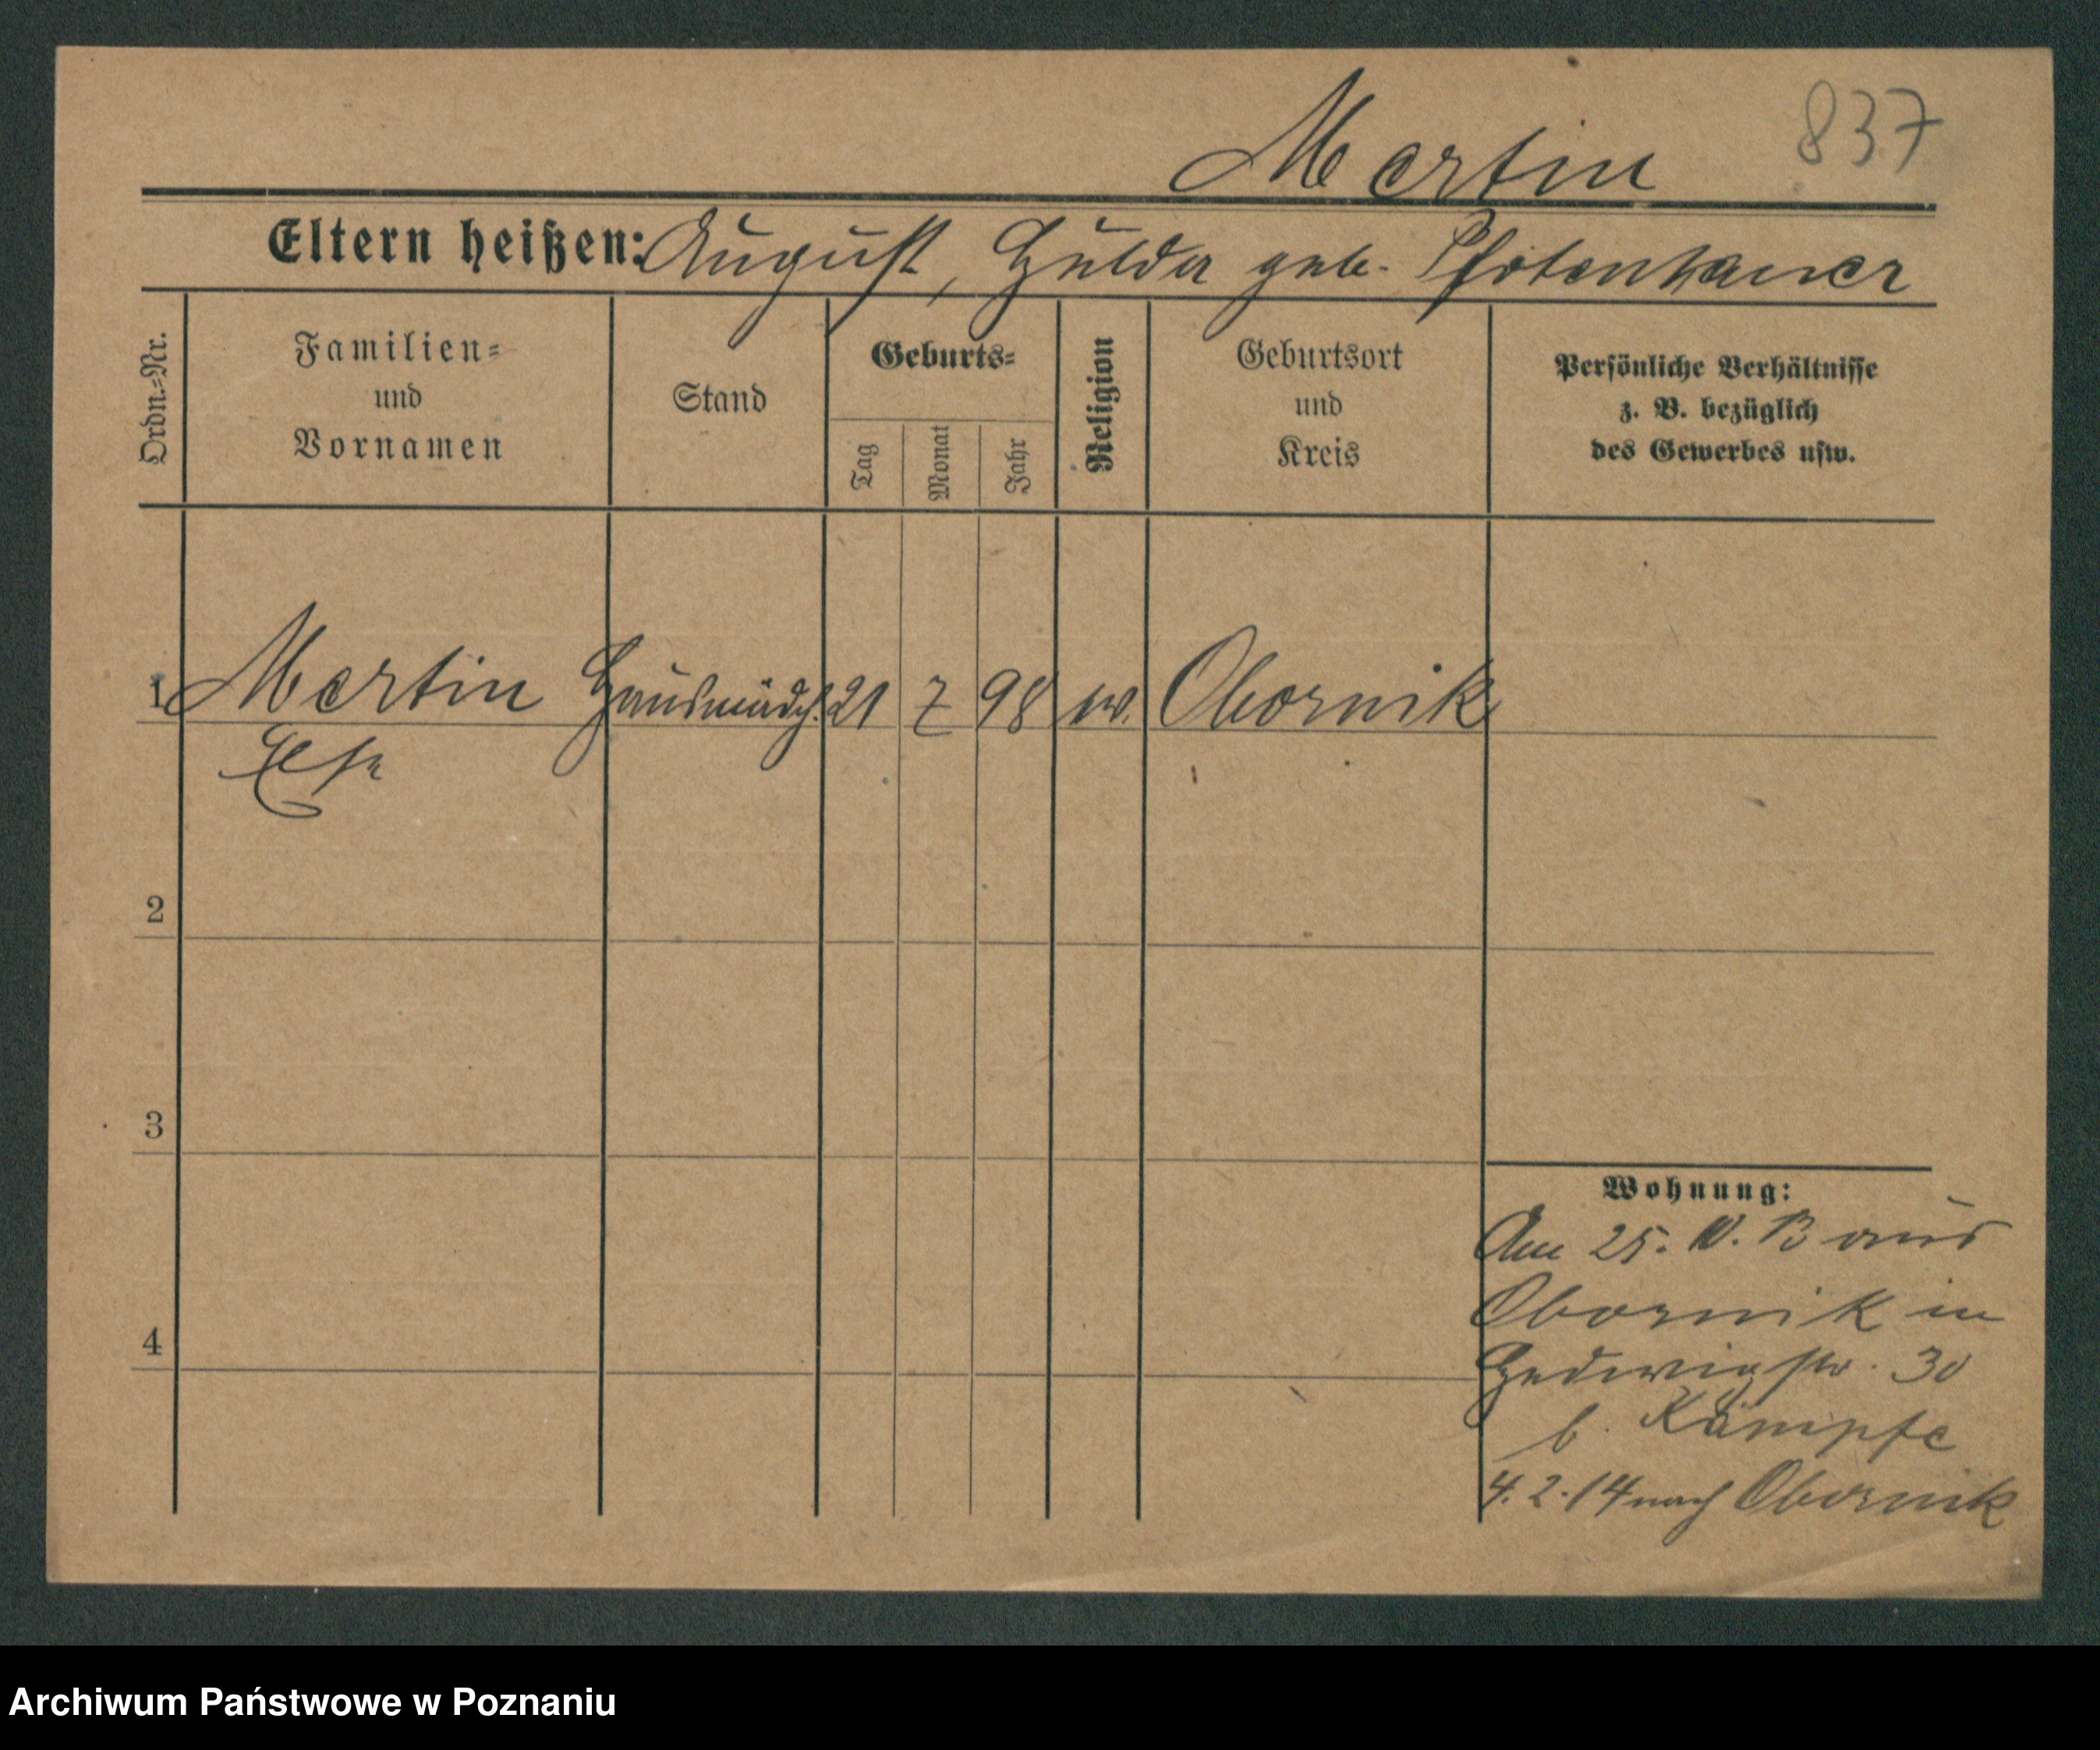 Martin 837
Eltern heißen: August, Hulda geb. Pfotenhauer
Ordn.=Nr.
Familien=
und
Vornamen
Stand
Geburts=
Tag
Monat
Jahr
Religion
Geburtsort
und
Kreis
Persönliche Verhältnisse
z. B. bezüglich
des Gewerbes usw.
1 Martin Hausmädch. 21 7 98 ev. Obornik
Else
2
3
4
Wohnung:
Am 25. 13 aus
Obornik in
Hedwigstr. 30
b. Kämpfe
4. 2. 14 nach Obornik
Archiwum Państwowe w Poznaniu